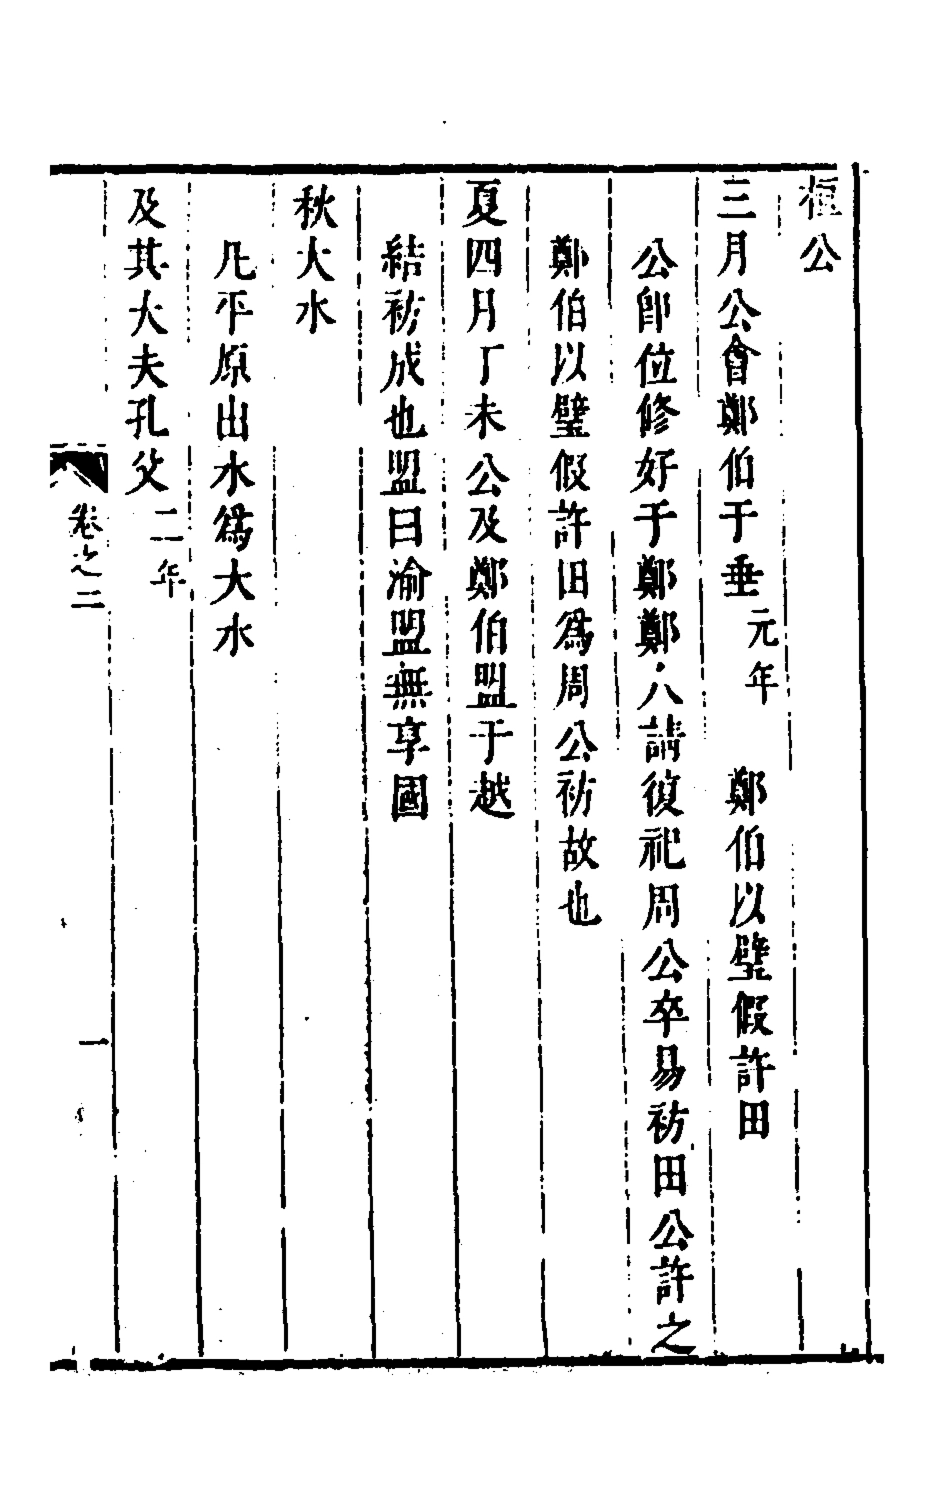 桓公
三月公會鄭伯于垂元年 鄭伯以璧假許田
公卽位修好于鄭鄭人請復祀周公卒易祊田公許之
鄭伯以璧假許田爲周公祊故也
夏四月丁未公及鄭伯盟于越
結祊成也盟曰渝盟無享國
秋大水
凡平原出水爲大水
及其大夫孔父二年
卷之二
一